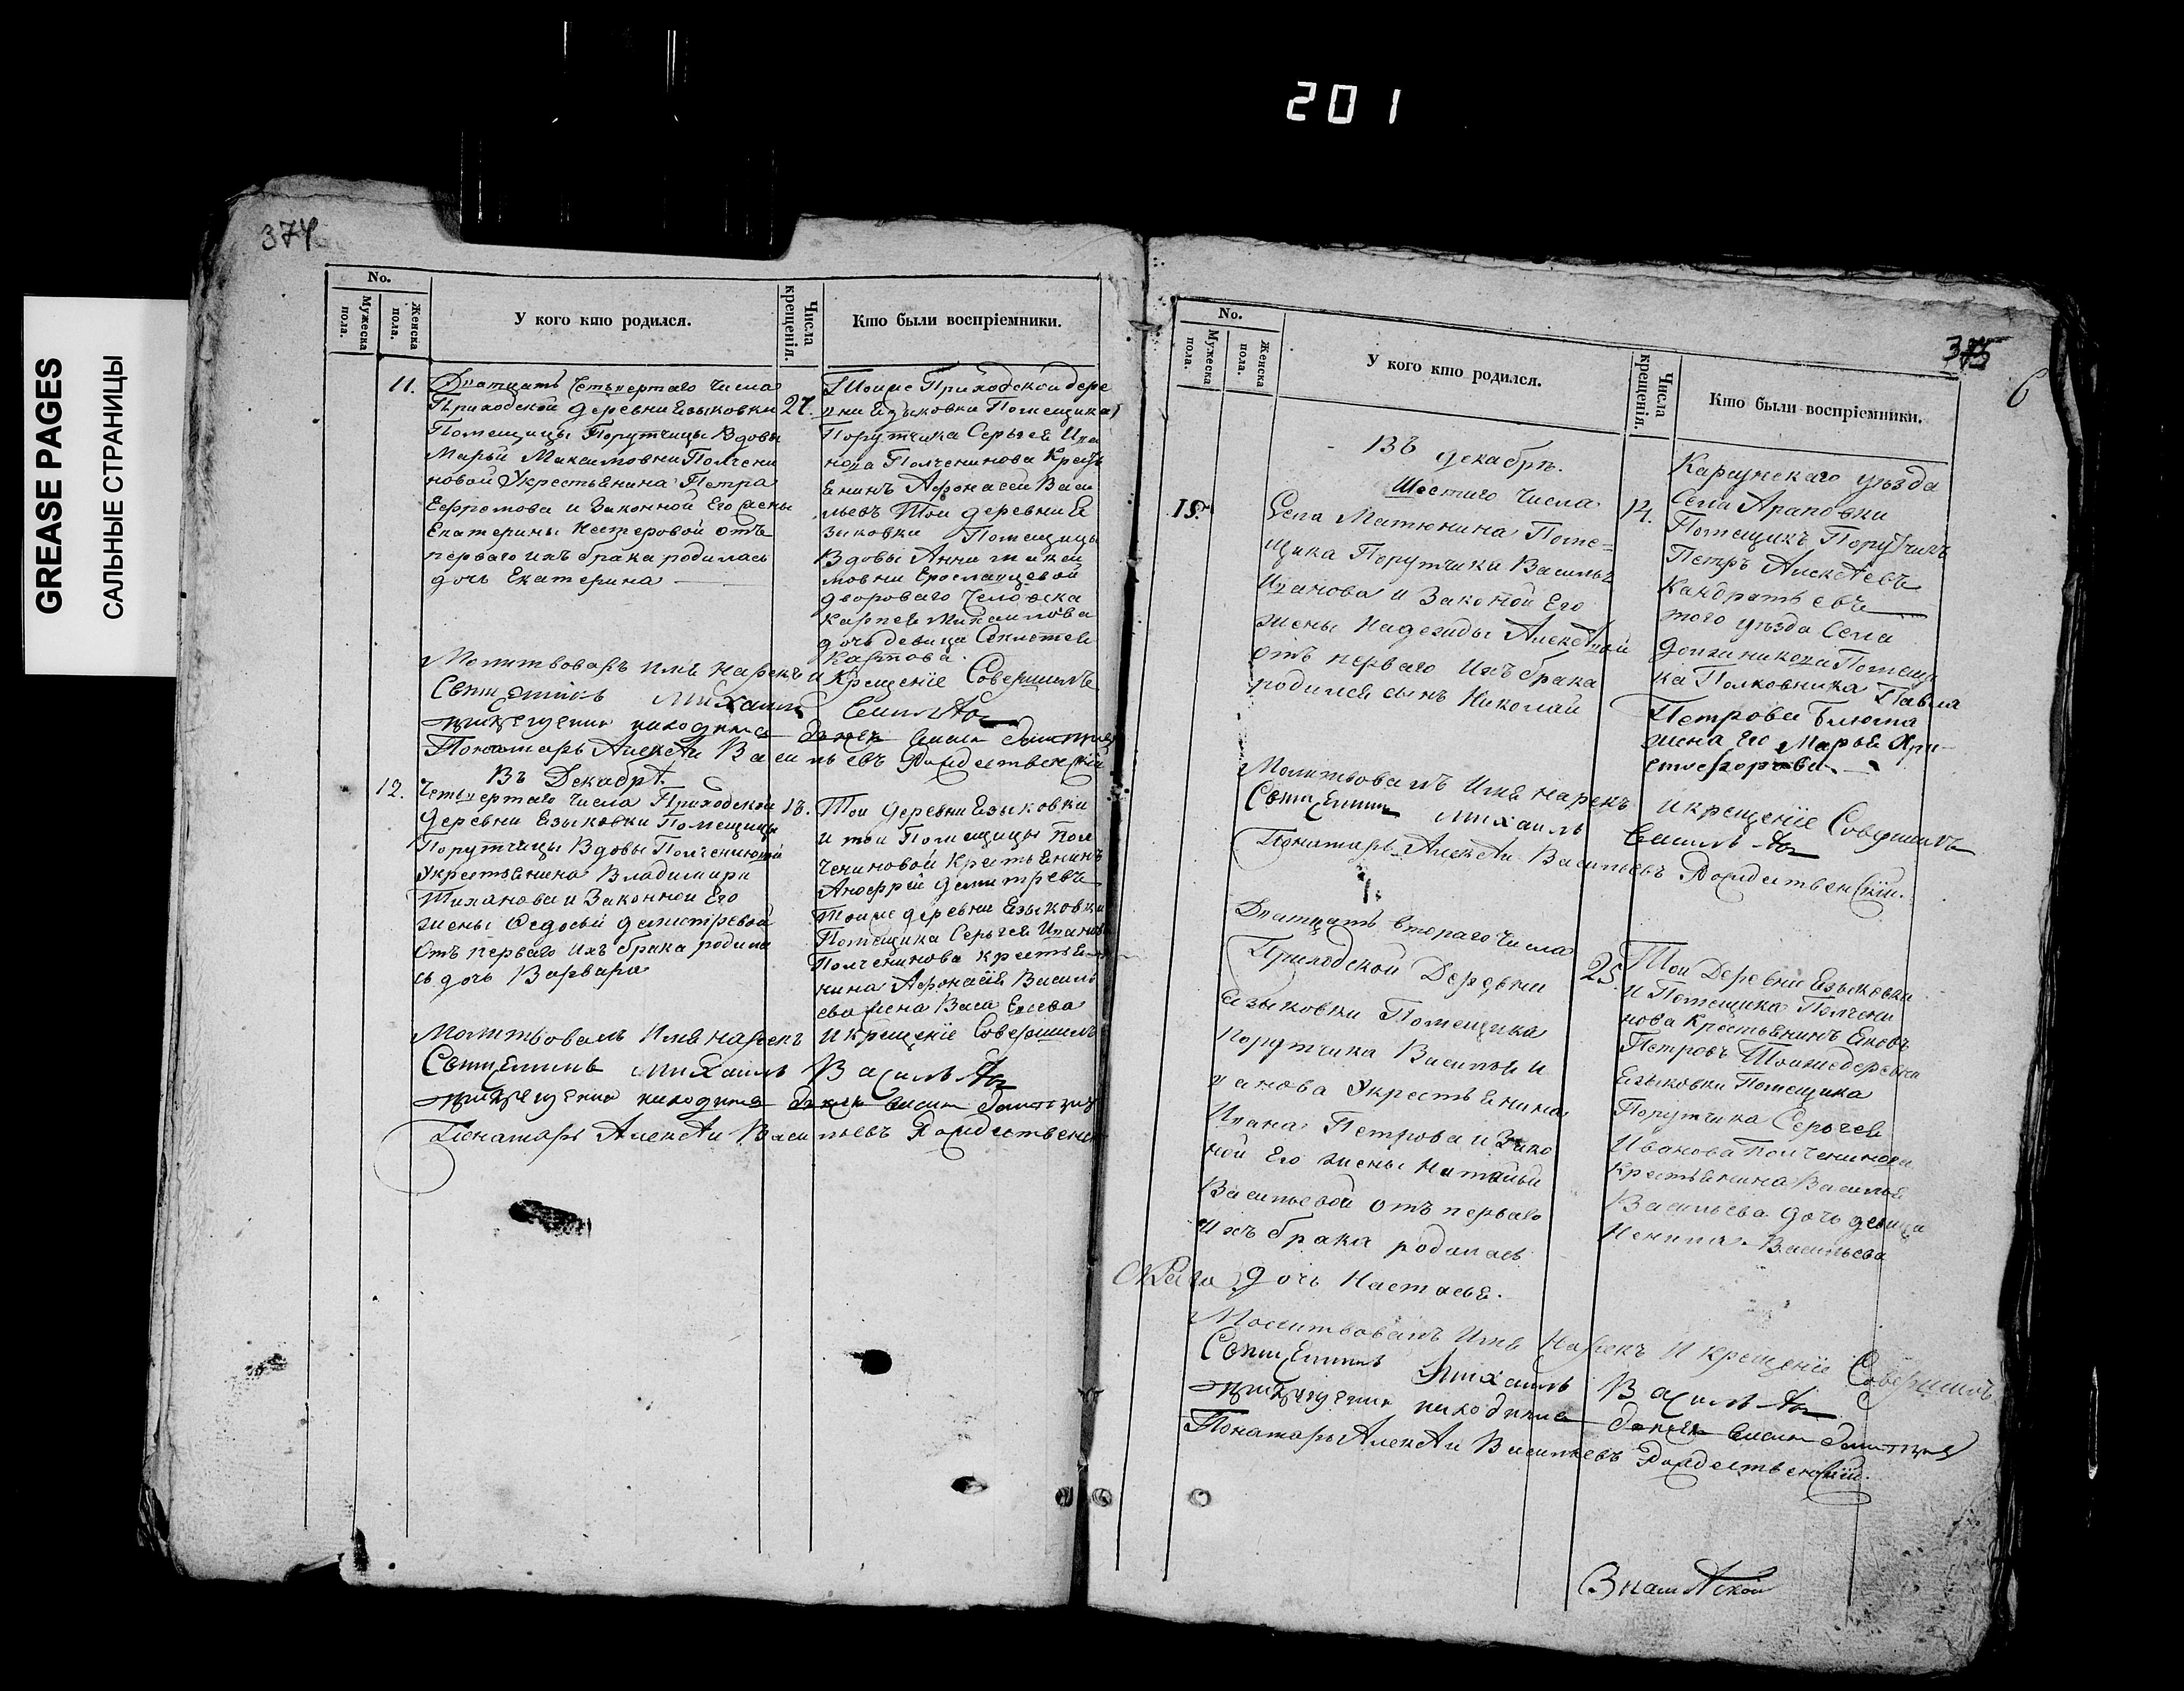 201
GREASE PAGES
САЛЬНЫЕ СТРАНИЦЫ
374
No.
Мужеска пола.
Женска пола.
У кого кто родился.
Числа крещенія.
Кто были воспріемники.
11.
Дватцать Четвертаго числа
Приходской деревни Езыковки
Помещицы Порутчицы Вдовы
Марьи Максимовни Полчени
новой Укрестьянина Петра
Ефремова и Законной Его жены
Екатерины Нестеровой отъ
перваго ихъ брака родилась
дочь Екатерина
27.
Тойже Приходской дере
вни Езыковки Помещика
Порутчика Сергѣя Ива
нова Полченинова Кресть
янинъ Афонасей Васи
льевъ Той деревни Е
зыковки Помещицы
Вдовы Анны
мовни Ерославцевой
двороваго Человека
Карпея Михаилова
дочь девица
Карпова.
Молитвовалъ имя нарекъ и Крещеніе Совершилъ
Священникъ Михаилъ
Понамарь Алексѣй Васильевъ Рождественскій
Въ Декабрѣ.
12.
Четвертаго числа Приходской
деревни Езыковки Помещицы
Порутчицы Вдовы Полчениновой
Укрестьянина Владимира
и Законной Его
жены Федосьи Демитревой
Отъ перваго ихъ брака родила
сь дочь Варвара
13.
Той деревни Езыковки
и той Помещицы Пол
чениновой Крестьянинъ
Аноефрей Демитревъ
Тойже деревни Езыковки
Помещика Сергѣя Иванова
Полченинова крестья
нина Афонасія Василь
ева жена Васа
Молитвовалъ Имя нарекъ И крещеніе Совершилъ
Священникъ Михаилъ Василь
Понамарь Алексѣй Васильевъ Рождественск
375
6
No.
Мужеска пола.
Женска пола.
У кого кто родился.
Числа крещенія.
Кто были воспріемники.
Въ декабрѣ.
15.
Шестаго числа
Села Матюнина Поме=
щика Порутчика Василья
Иванова и Законой Его
жены Надежды Алексѣвой
отъ перваго Ихъ брака
родился сынъ Николай
14.
Карсунскаго уѣзда
Села Араповки
Помещикъ Порутчикъ
Петръ Алексѣевъ
Кандратьевъ
того уѣзда Села
Помещи
ка Полковника Павла
Петрова
жена Его Марья Хри-
стофорова.
Молитвовалъ Имя нарекъ и крещеніе Совершилъ
Священникъ Михаилъ Василь
Понамарь Алексѣй Васильевъ Рождественскій.
Дватцать втораго числа
Приходской Деревни
Езыковки Помещика
Порутчика Василья И
ванова Укрестьянина
Ивана Петрова и Зако
ной Его жены Натальи
Васильевой отъ перваго
Ихъ брака родилась
дочь Настасья.
25.
Той Деревни Езыковки
и Помещика Полчени
нова Крестьянинъ Яковъ
Петровъ Тойже деревни
Езыковки Помещика
Порутчика Сергѣя
Иванова Полченинова
Крестьянина Василья
Васильева дочь девица
Васильева
Молитвовалъ Имя Нарекъ И крещеніе Совершилъ
Священникъ Михаилъ Василь
Понамарь Алексѣй Васильевъ Рождественскій.